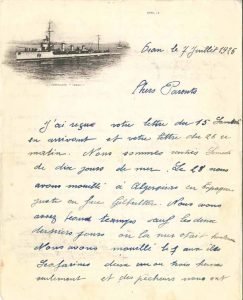 Oran le 7 Juillet 1926
Chers Parents
J'ai reçue votre lettre du 15
en arrivant et votre lettre du 26 ce
matin. Nous sommes entrés
de dix jours de mer. Le 28 nous
avons mouillé à Algésiras en Espagne
juste en face Gibraltar. Nous avons
assez beau temps sauf les deux
derniers jours où la mer était
Nous avons mouillé
deux ou trois heures
seulement et des pêcheurs nous ont